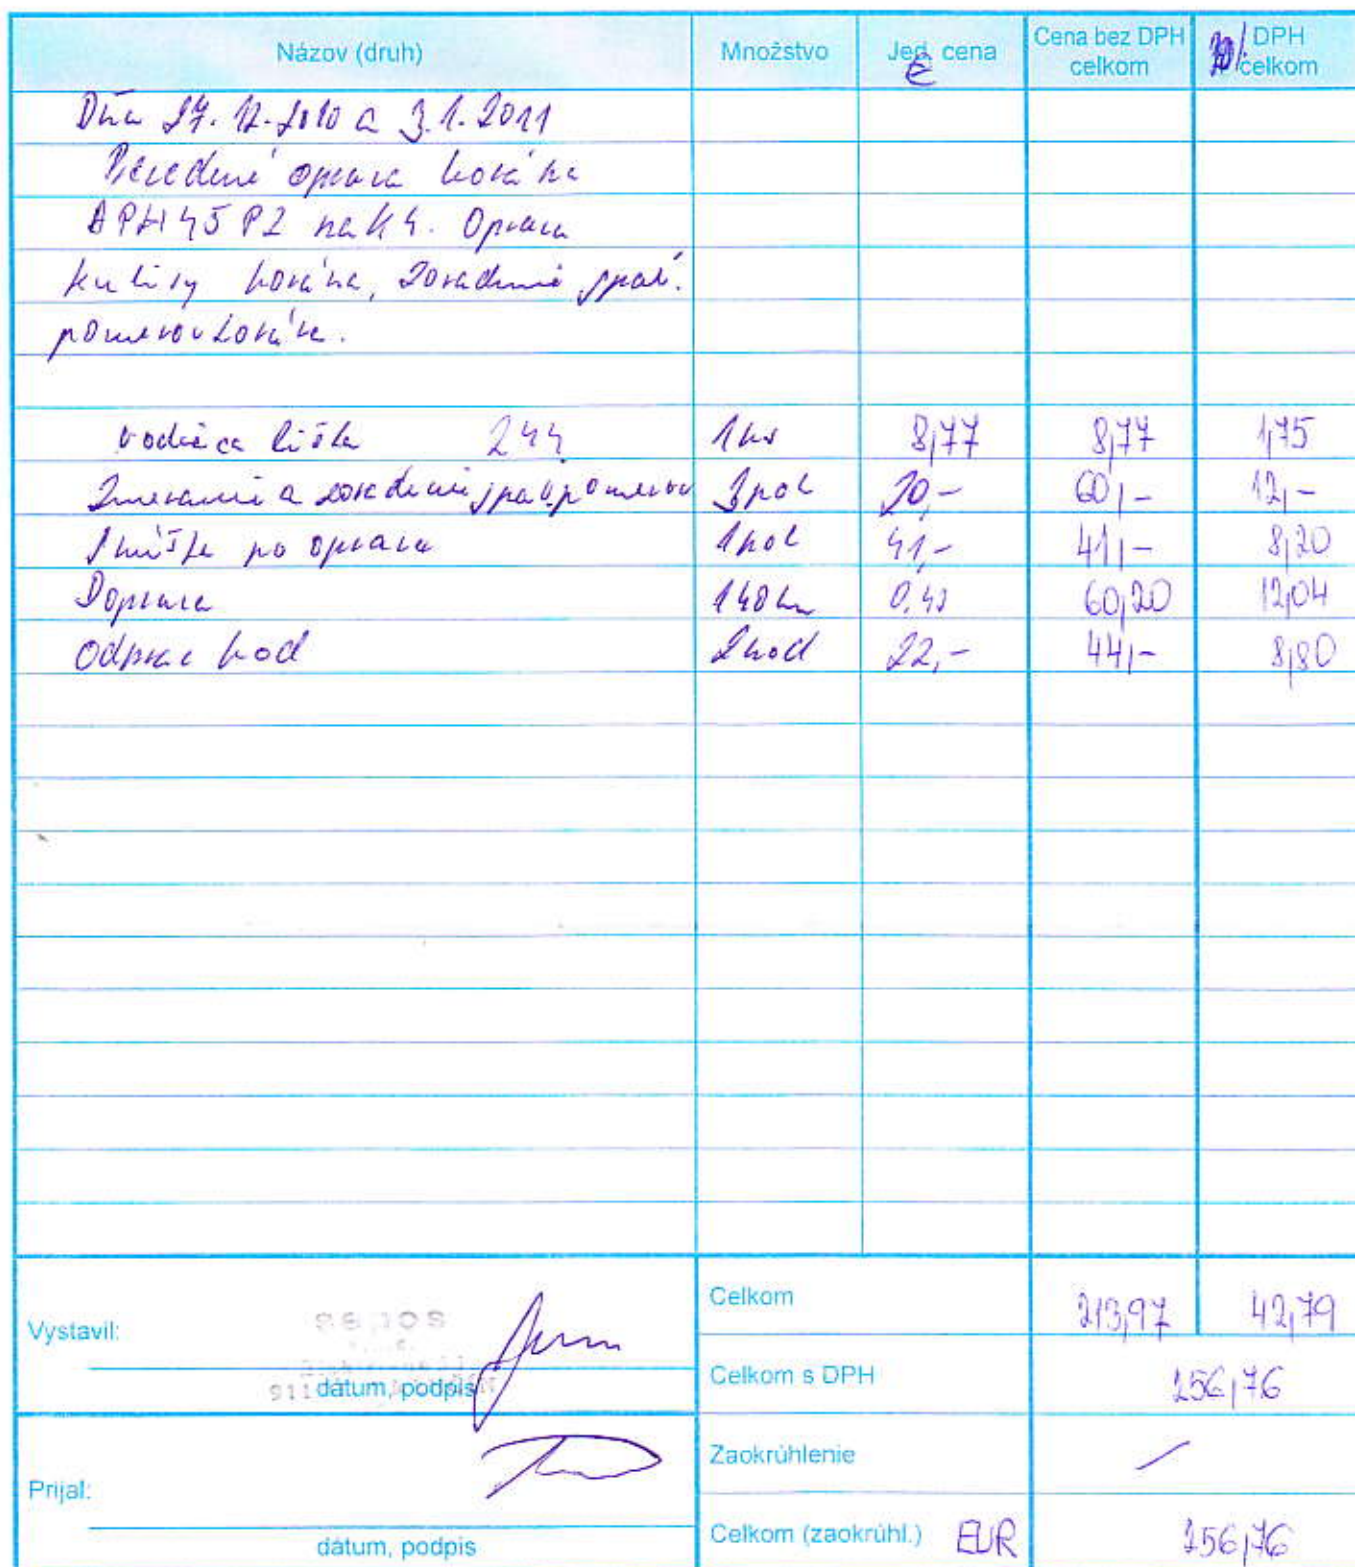 Názov (druh) Množstvo Jed. cena € Cena bez DPH celkom 20% DPH celkom
Dňa 27.12.2010 a 3.1.2011
oprava horáka
APH45 PZ na K4. Oprava
kulisy horáka, zoradenie spaľ.
pomerov horáka.
vodiaca lišta 244 1ks 8,77 8,77 1,75
Zmeranie a zoradenie spaľ.pomerov 3pol 20,- 60,- 12,-
Skúška po oprava 1pol 41,- 41,- 8,20
Doprava 140km 0,43 60,20 12,04
Odprac hod 2hod 22,- 44,- 8,80
Vystavil:
dátum, podpis
Celkom 213,97 42,79
Celkom s DPH 256,76
Zaokrúhlenie
Prijal:
dátum, podpis
Celkom (zaokrúhl.) EUR 256,76